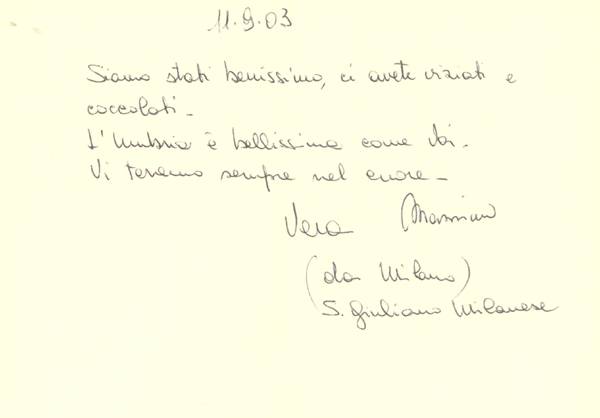 11.9.03
Siamo stati benissimo, ci avete viziati e
coccolati.
L'Umbria è bellissima come Voi.
Vi terremo sempre nel cuore.
Vera Massimo
(da Milano)
S. Giuliano Milanese